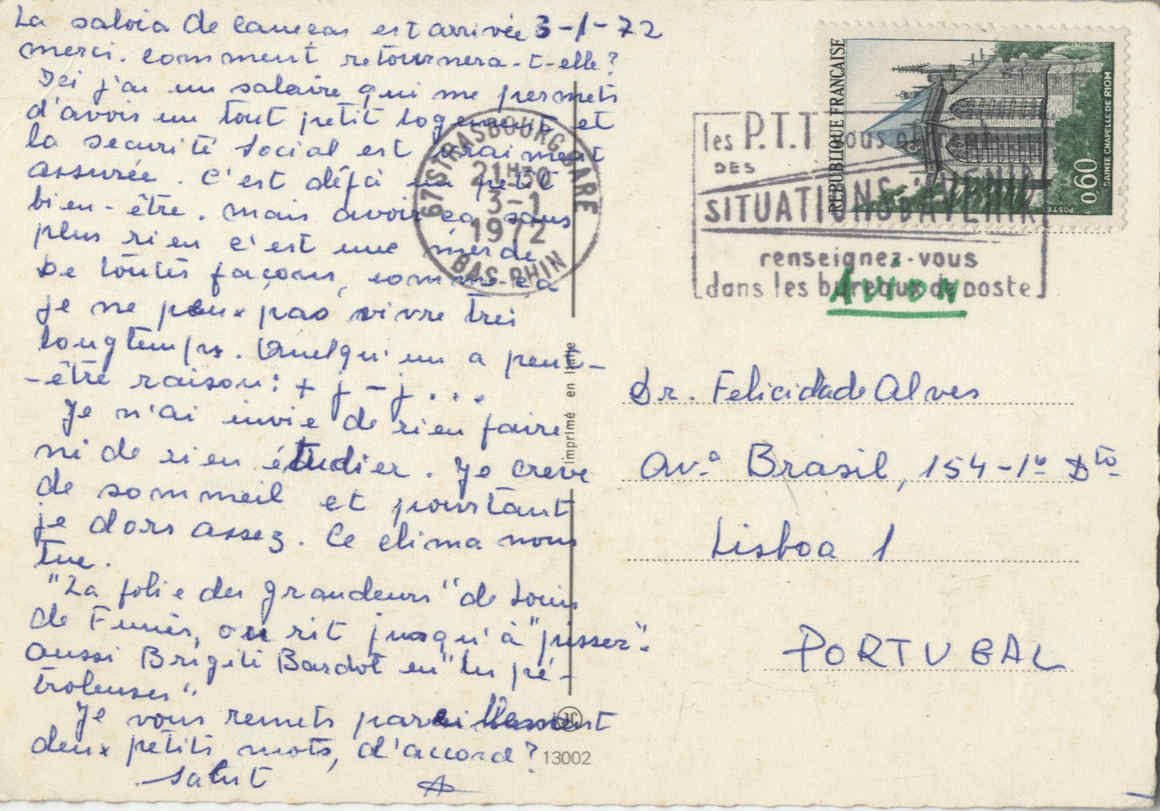 La salvia de cameas est arrivée 3-1-72
merci. comment retournera-t-elle?
Ici j'ai un salaire qui me permets
d'avoir un tout petit logement et
la securité social est vraiment
assurée. C'est déjà un petit
bien-être. mais avoir ça sans
plus rien c'est une merde
De toutes façons, comme ça
je ne peux pas vivre trei
longtemps. Quelqu'un a peut-
-être raison: + + - + ...
Je n'ai envie de rien faire
ni de rien étudier. Je creve
de sommeil et pourtant
je dors assez. Ce clima nous
tue.
"La folie des grandeurs" de Louis
de Funès, on rit jusqu'à "pisser".
aussi Brigiti Bardot en "les pé-
troleuses".
Je vous remets pareillement
deux petits mots, d'accord?
Salut
REPUBLIQUE FRANÇAISE
0,60
SAINTE CHAPELLE DE RIOM
POSTES
67 STRASBOURG GARE
21H30
3-1
1972
BAS-RHIN
les P.T.T vous offrent
DES
SITUATIONS D'AVENIR
renseignez-vous
dans les bureaux de poste
AVION
Dr. Felicidade Alves
Av.ª Brasil, 154-1º Dto
Lisboa 1
PORTUGAL
Imprimé en Italie
13002